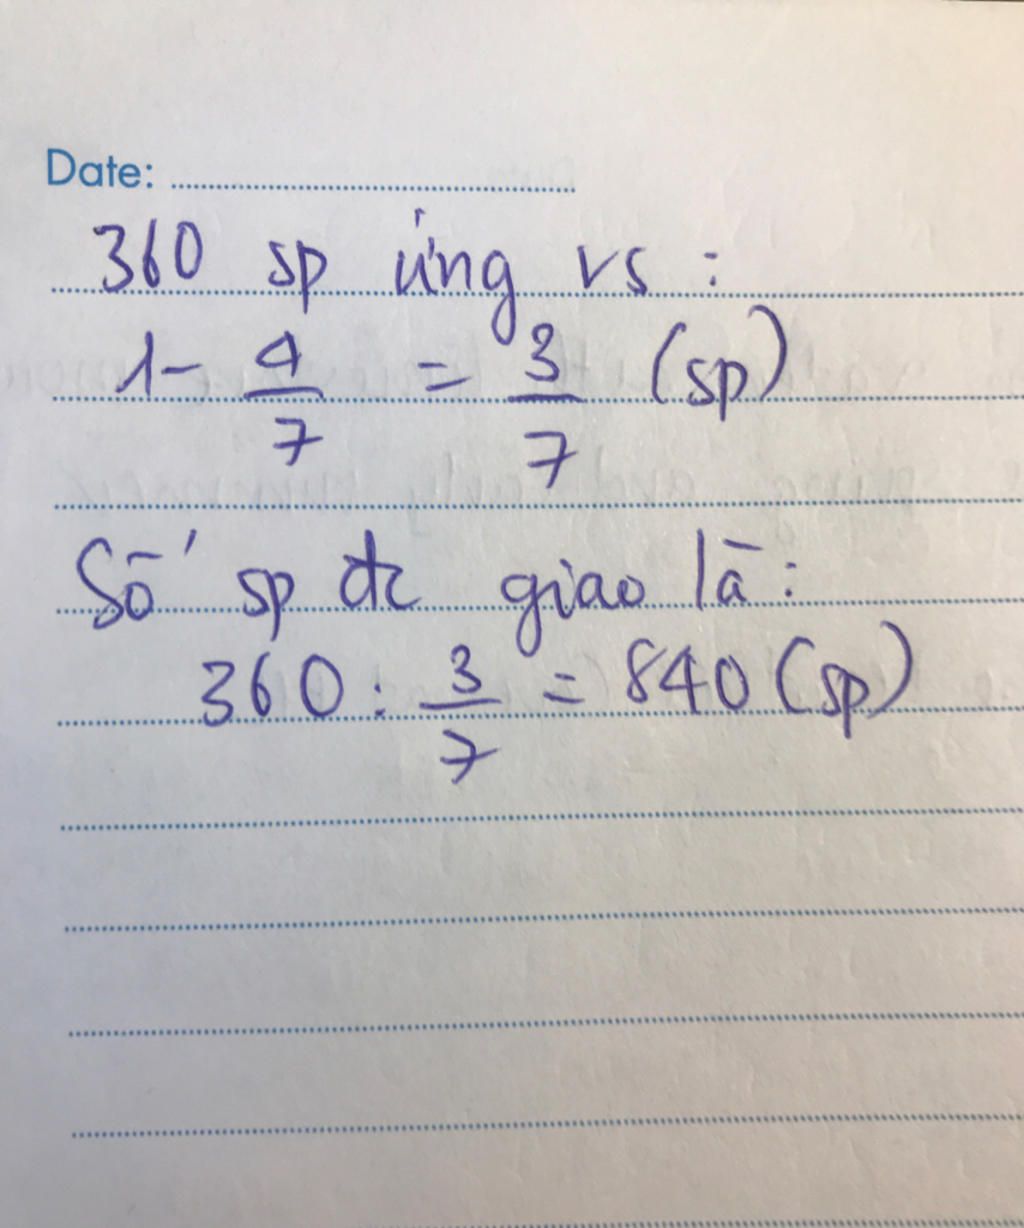 Date:
360 sp ứng vs :
1 - 4/7 = 3/7 (sp)
Số sp đc giao là :
360 : 3/7 = 840 (sp)